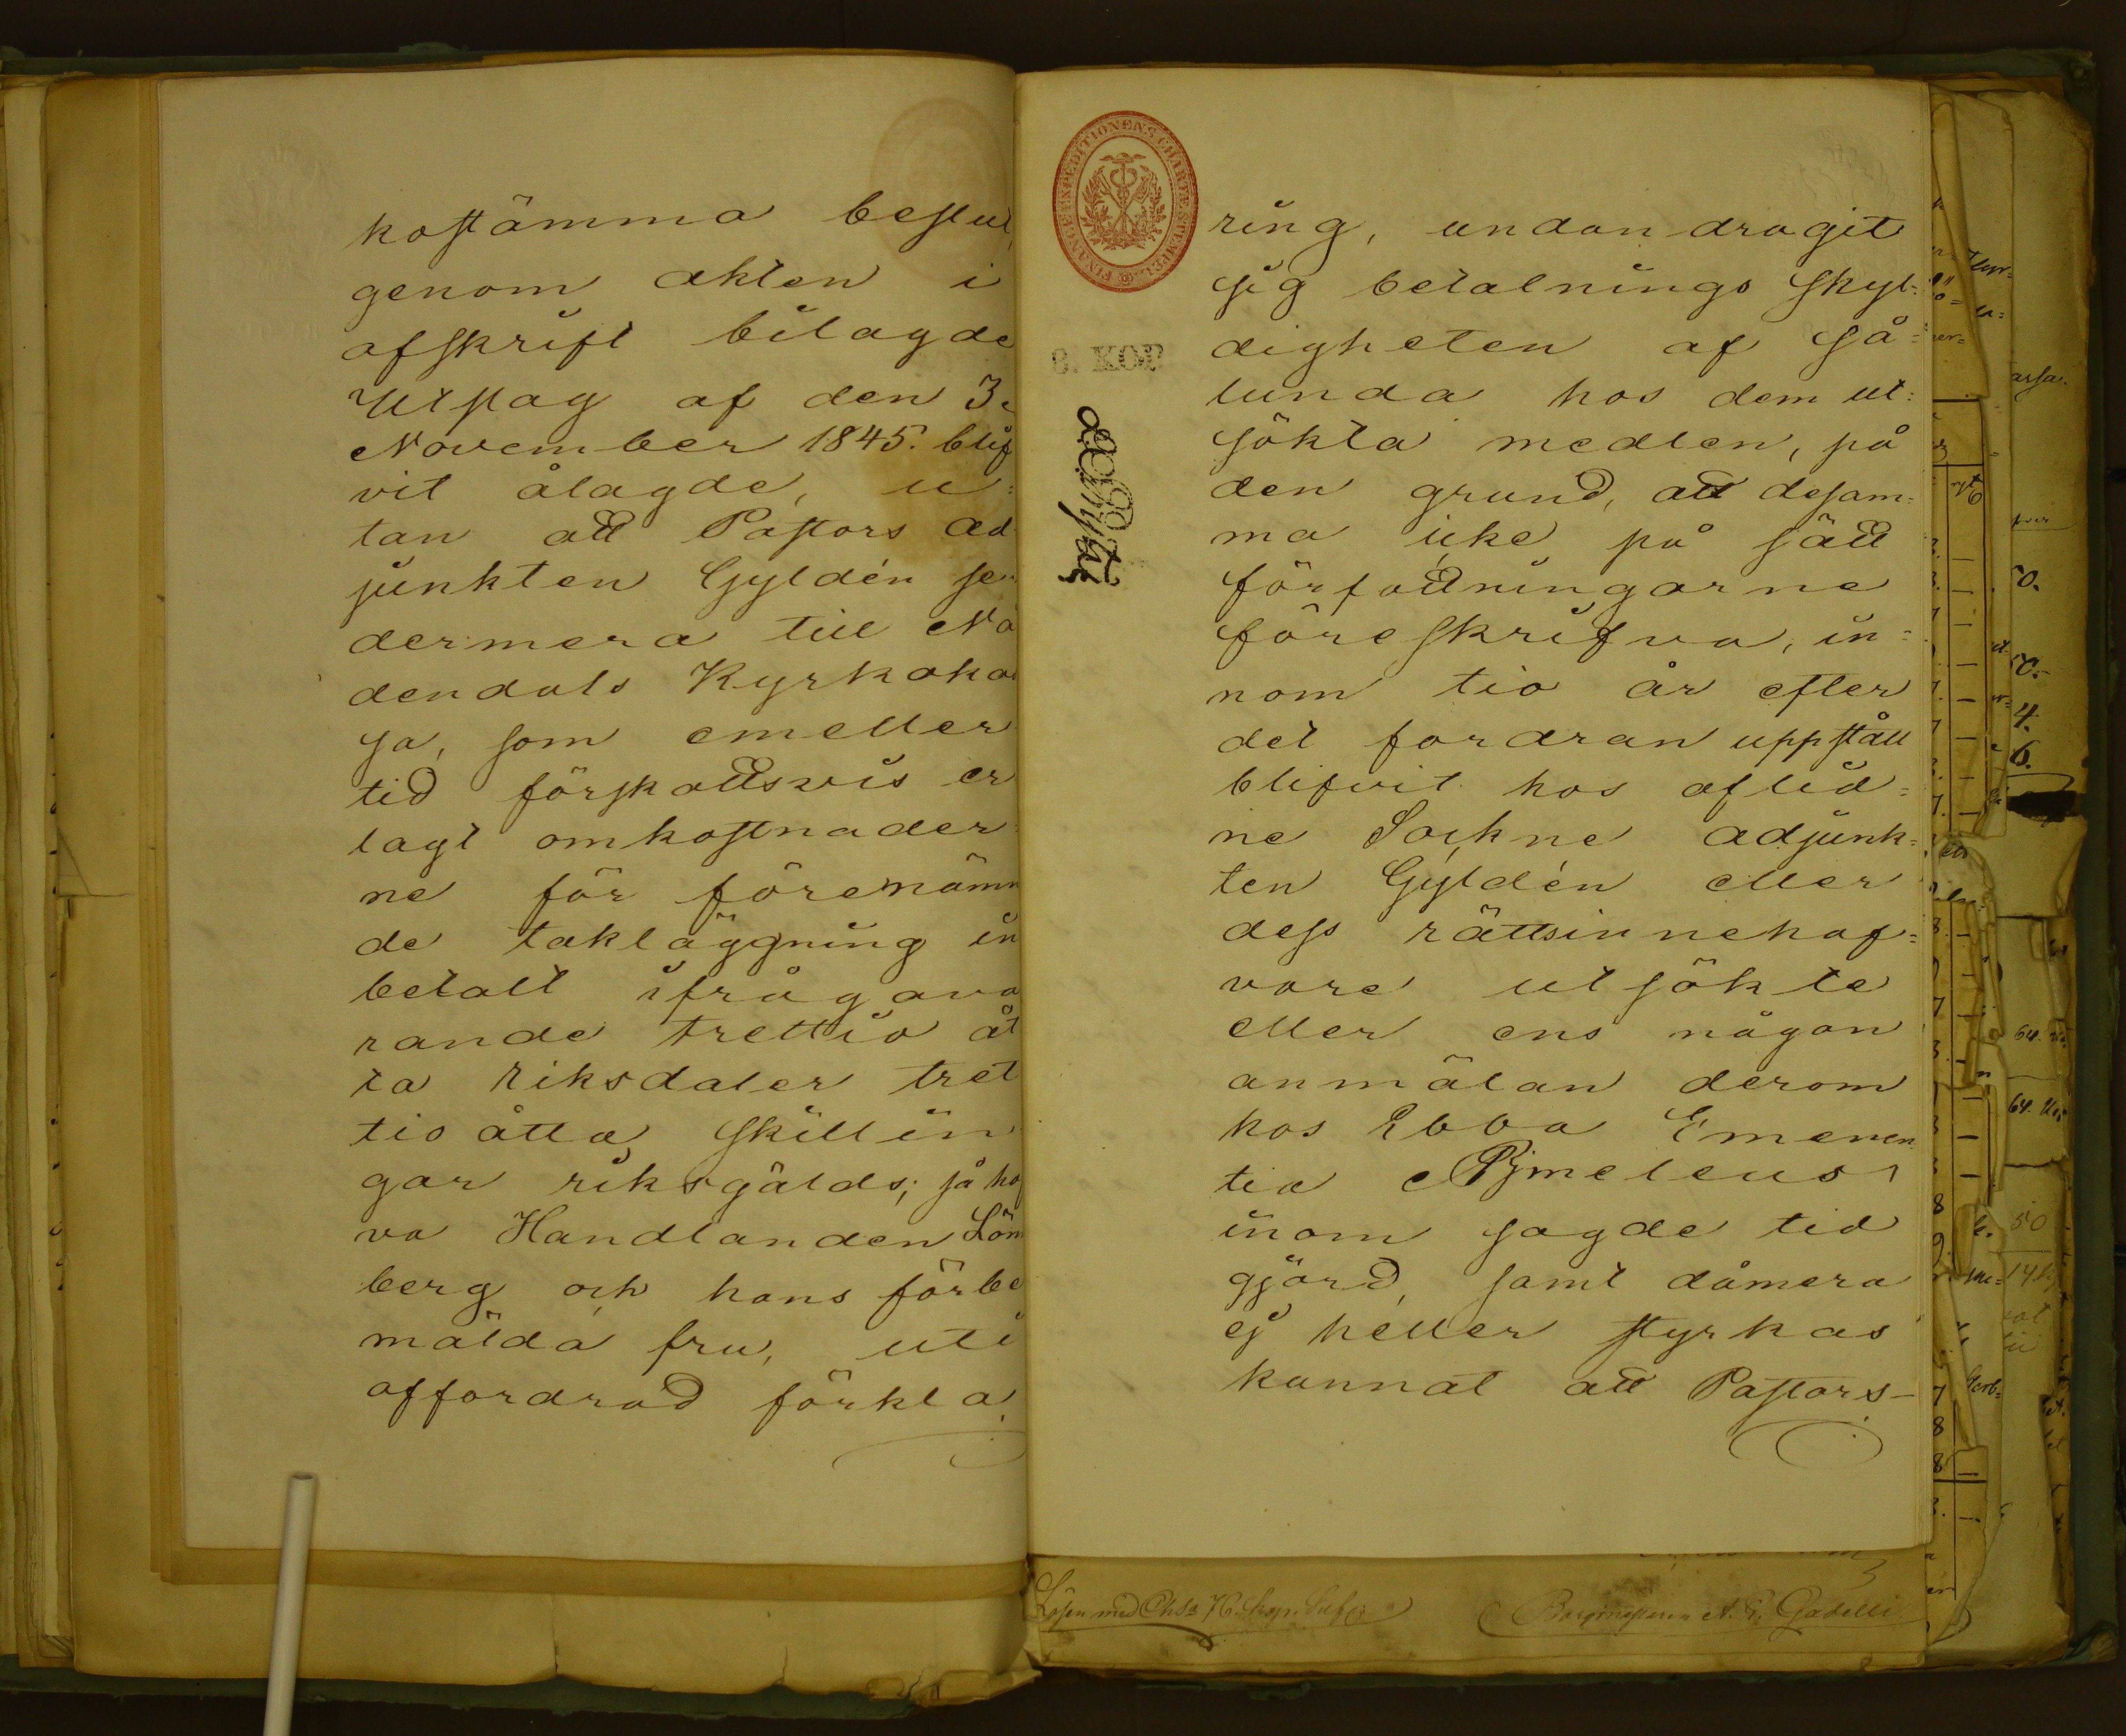 kostämma beslut,
genom akten i
afskrift bilagde
Utslag af den 3.
November 1845. blif
vit ålagde, u=
tan att Pastors Ad
junkten Gyldén se
dermera till Nå
dendals Kyrkoka
sa, som emeller
tid förskottsvis er
lagt omkostnader
ne för förenämn
de takläggning in
betalt ifrågava
rande trettio åt
ta Riksdaler tret
tio åtta Skillin
gar riksgälds; så haf
va Handlanden Lön
berg och hans förbe
mälda fru, uti
affordrad förkla
FINANCE EXPEDITIONENS CHARTE STEMPEL
8. KOP.
ring, undandragit
sig betalnings skyl=
digheten af så=
lunda hos dem ut=
sökta medlen, på
den grund, att desam=
ma icke på sätt
författningarne
föreskrifva, in=
nom tio år efter
det fordran uppstått
blifvit hos aflid=
ne Sockne adjunk=
ten Gyldén eller
dess rättsinnehaf=
vare utsökte
eller ens någon
anmälan derom
hos Ebba Emeren
tia Nymeleus
inom sagde tid
gjord, samt dåmera
ej heller styrkas
kunnat att Pastors-
Lösen med Chsa
Borgmästaren A. G. Gadelli